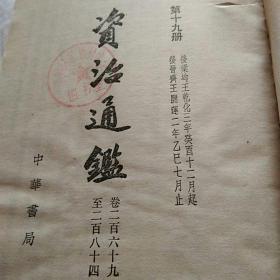 第十九册
後梁均王乾化三年癸酉十二月起
後晉齊王開運二年乙巳七月止
資治通鑑
卷二百六十九
至二百八十四
中華書局